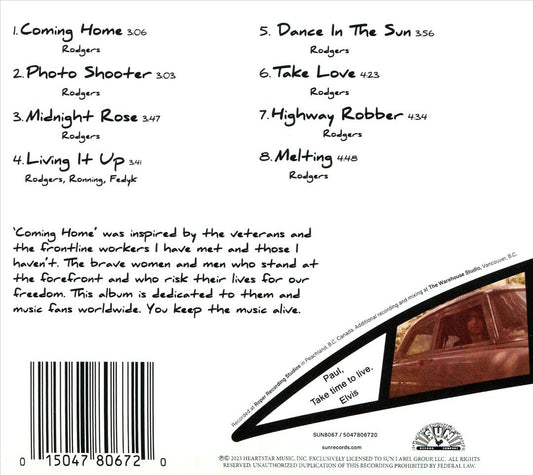 1. Coming Home 3:06
Rodgers
2. Photo Shooter 3:03
Rodgers
3. Midnight Rose 3:47
Rodgers
4. Living It Up 3:41
Rodgers, Ronning, Fedyk
5. Dance In The Sun 3:56
Rodgers
6. Take Love 4:23
Rodgers
7. Highway Robber 4:34
Rodgers
8. Melting 4:48
Rodgers
'Coming Home' was inspired by the veterans and
the frontline workers I have met and those I
haven't. The brave women and men who stand at
the forefront and who risk their lives for our
freedom. This album is dedicated to them and
music fans worldwide. You keep the music alive.
Recorded at Roper Recording Studios in Peachland, B.C. Canada. Additional recording and mixing at The Warehouse Studio, Vancouver, B.C.
Paul,
Take time to live.
Elvis
0 15047 80672 0
SUN8067 / 5047806720
sunrecords.com
SUN
RECORD COMPANY
℗ © 2023 HEARTSTAR MUSIC, INC. EXCLUSIVELY LICENSED TO SUN LABEL GROUP, LLC. ALL RIGHTS
RESERVED. UNAUTHORIZED DUPLICATION OF THIS RECORDING PROHIBITED BY FEDERAL LAW.